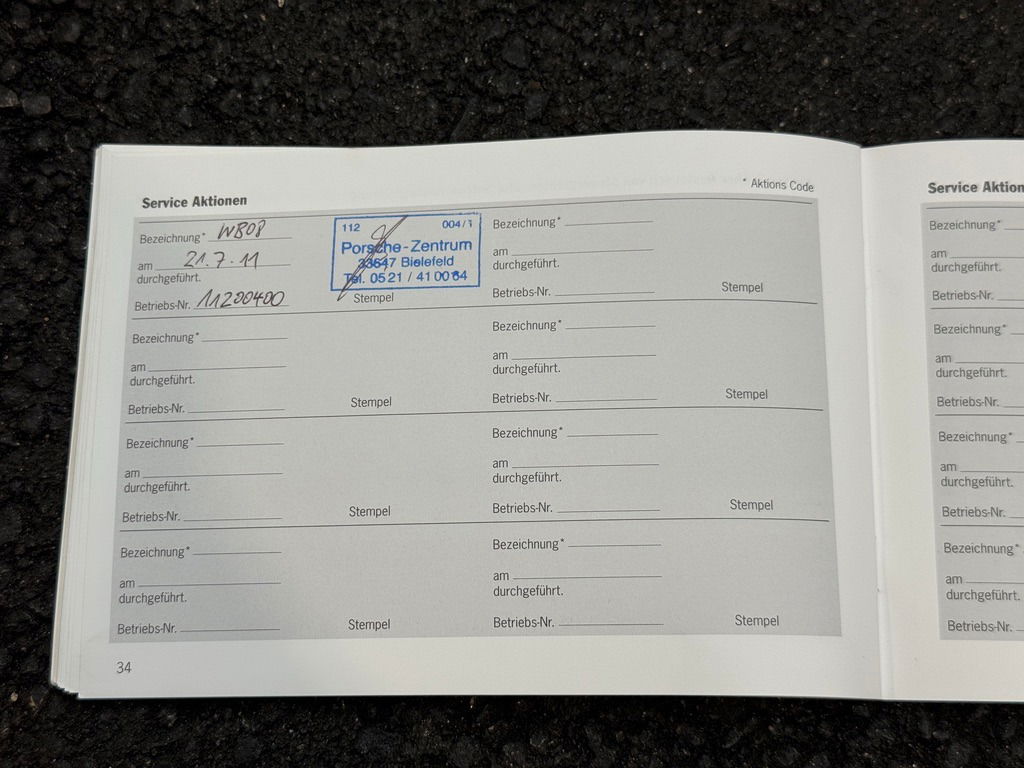 * Aktions Code
Service Aktionen
Bezeichnung* WB08
am 21.7.11
durchgeführt.
Betriebs-Nr. 11200400
112 004/1
Porsche-Zentrum
33647 Bielefeld
Tel. 05 21 / 41 00 64
Stempel
Bezeichnung*
am
durchgeführt.
Betriebs-Nr. Stempel
Bezeichnung*
am
durchgeführt.
Betriebs-Nr. Stempel
Bezeichnung*
am
durchgeführt.
Betriebs-Nr. Stempel
Bezeichnung*
am
durchgeführt.
Betriebs-Nr. Stempel
Bezeichnung*
am
durchgeführt.
Betriebs-Nr. Stempel
Bezeichnung*
am
durchgeführt.
Betriebs-Nr. Stempel
Bezeichnung*
am
durchgeführt.
Betriebs-Nr. Stempel
34
Service Aktion
Bezeichnung*
am
durchgeführt.
Betriebs-Nr.
Bezeichnung*
am
durchgeführt.
Betriebs-Nr.
Bezeichnung*
am
durchgeführt.
Betriebs-Nr.
Bezeichnung*
am
durchgeführt.
Betriebs-Nr.